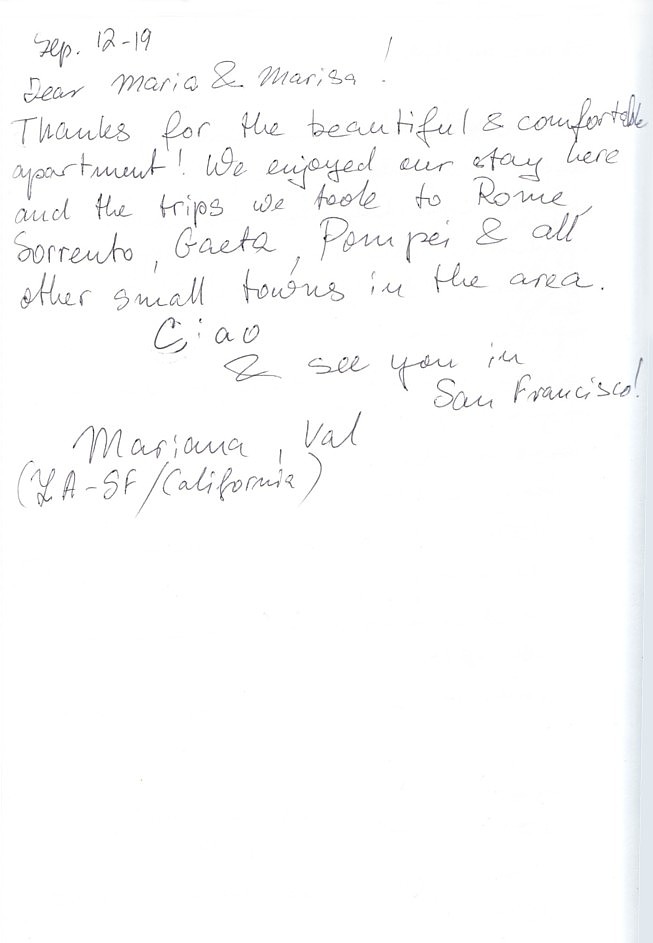 Sep. 12-19
Dear Maria & Marisa!
Thanks for the beautiful & comfortable
apartment! We enjoyed our stay here
and the trips we took to Rome,
Sorrento, Gaeta, Pompei & all
other small towns in the area.
Ciao
& see you in
San Francisco!
Mariana, Val
(LA-SF/California)